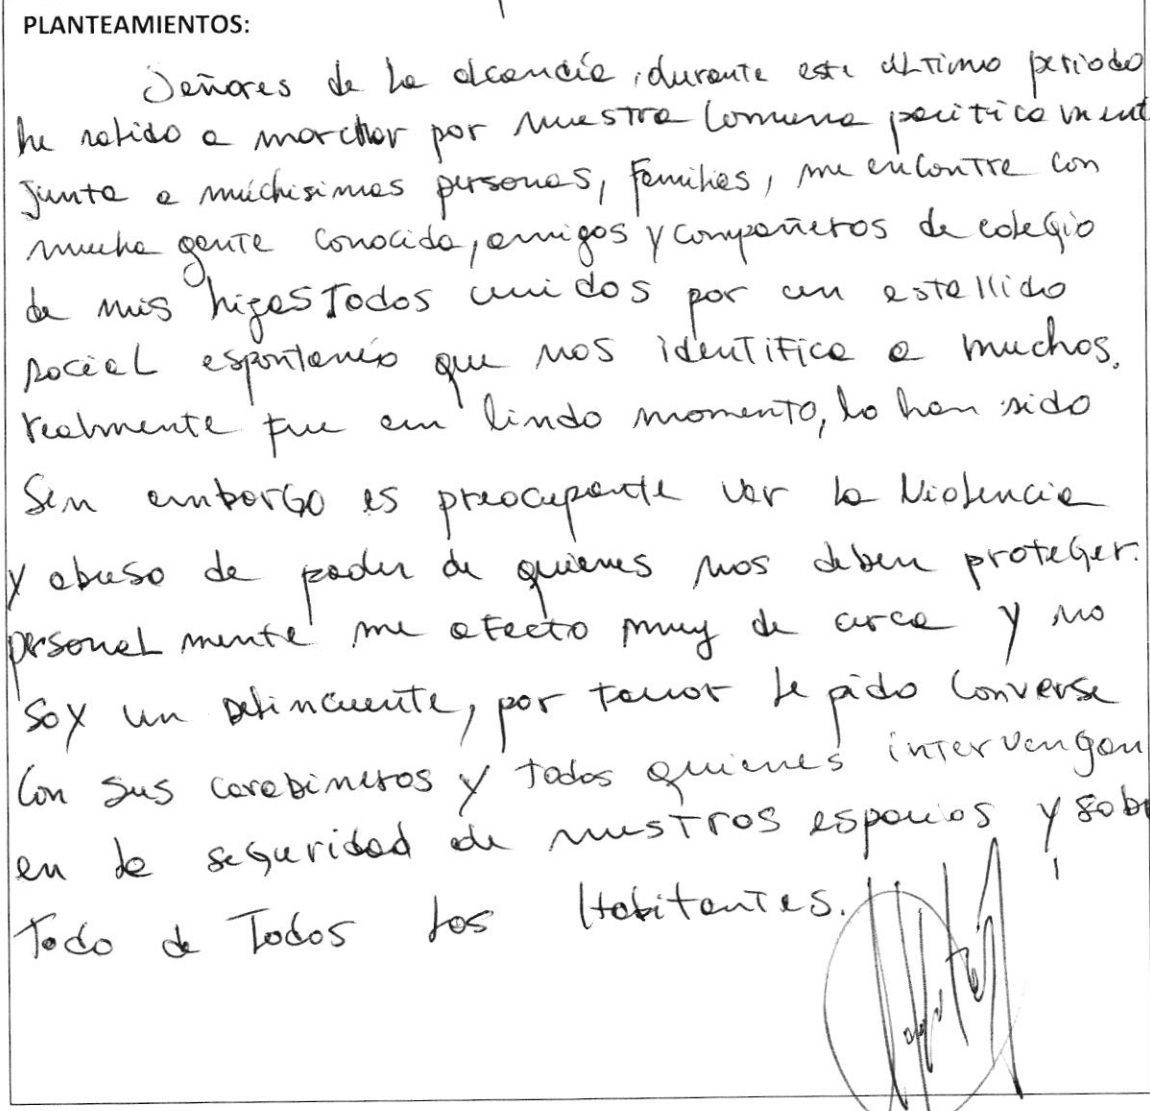 PLANTEAMIENTOS:
Señores de la alcandía, durante este ultimo periodo
he salido a marchar por nuestra comuna pacificament
Junto a muchisimas personas, familias, me encontre con
mucha gente conocida, amigos y compañeros de colegio
de mis hijos Todos unidos por un estallido
social espontaneo que nos identifica a muchos.
realmente fue un lindo momento, lo han sido
Sin embargo es preocupante ver la Violencia
y abuso de poder de quienes nos deben proteger.
personalmente me afecto muy de cerca y no
soy un Delincuente, por favor le pido converse
Con sus carabineros y todos quienes intervengan
en la seguridad de nuestros espacios y sob
Todo de Todos los Habitantes.